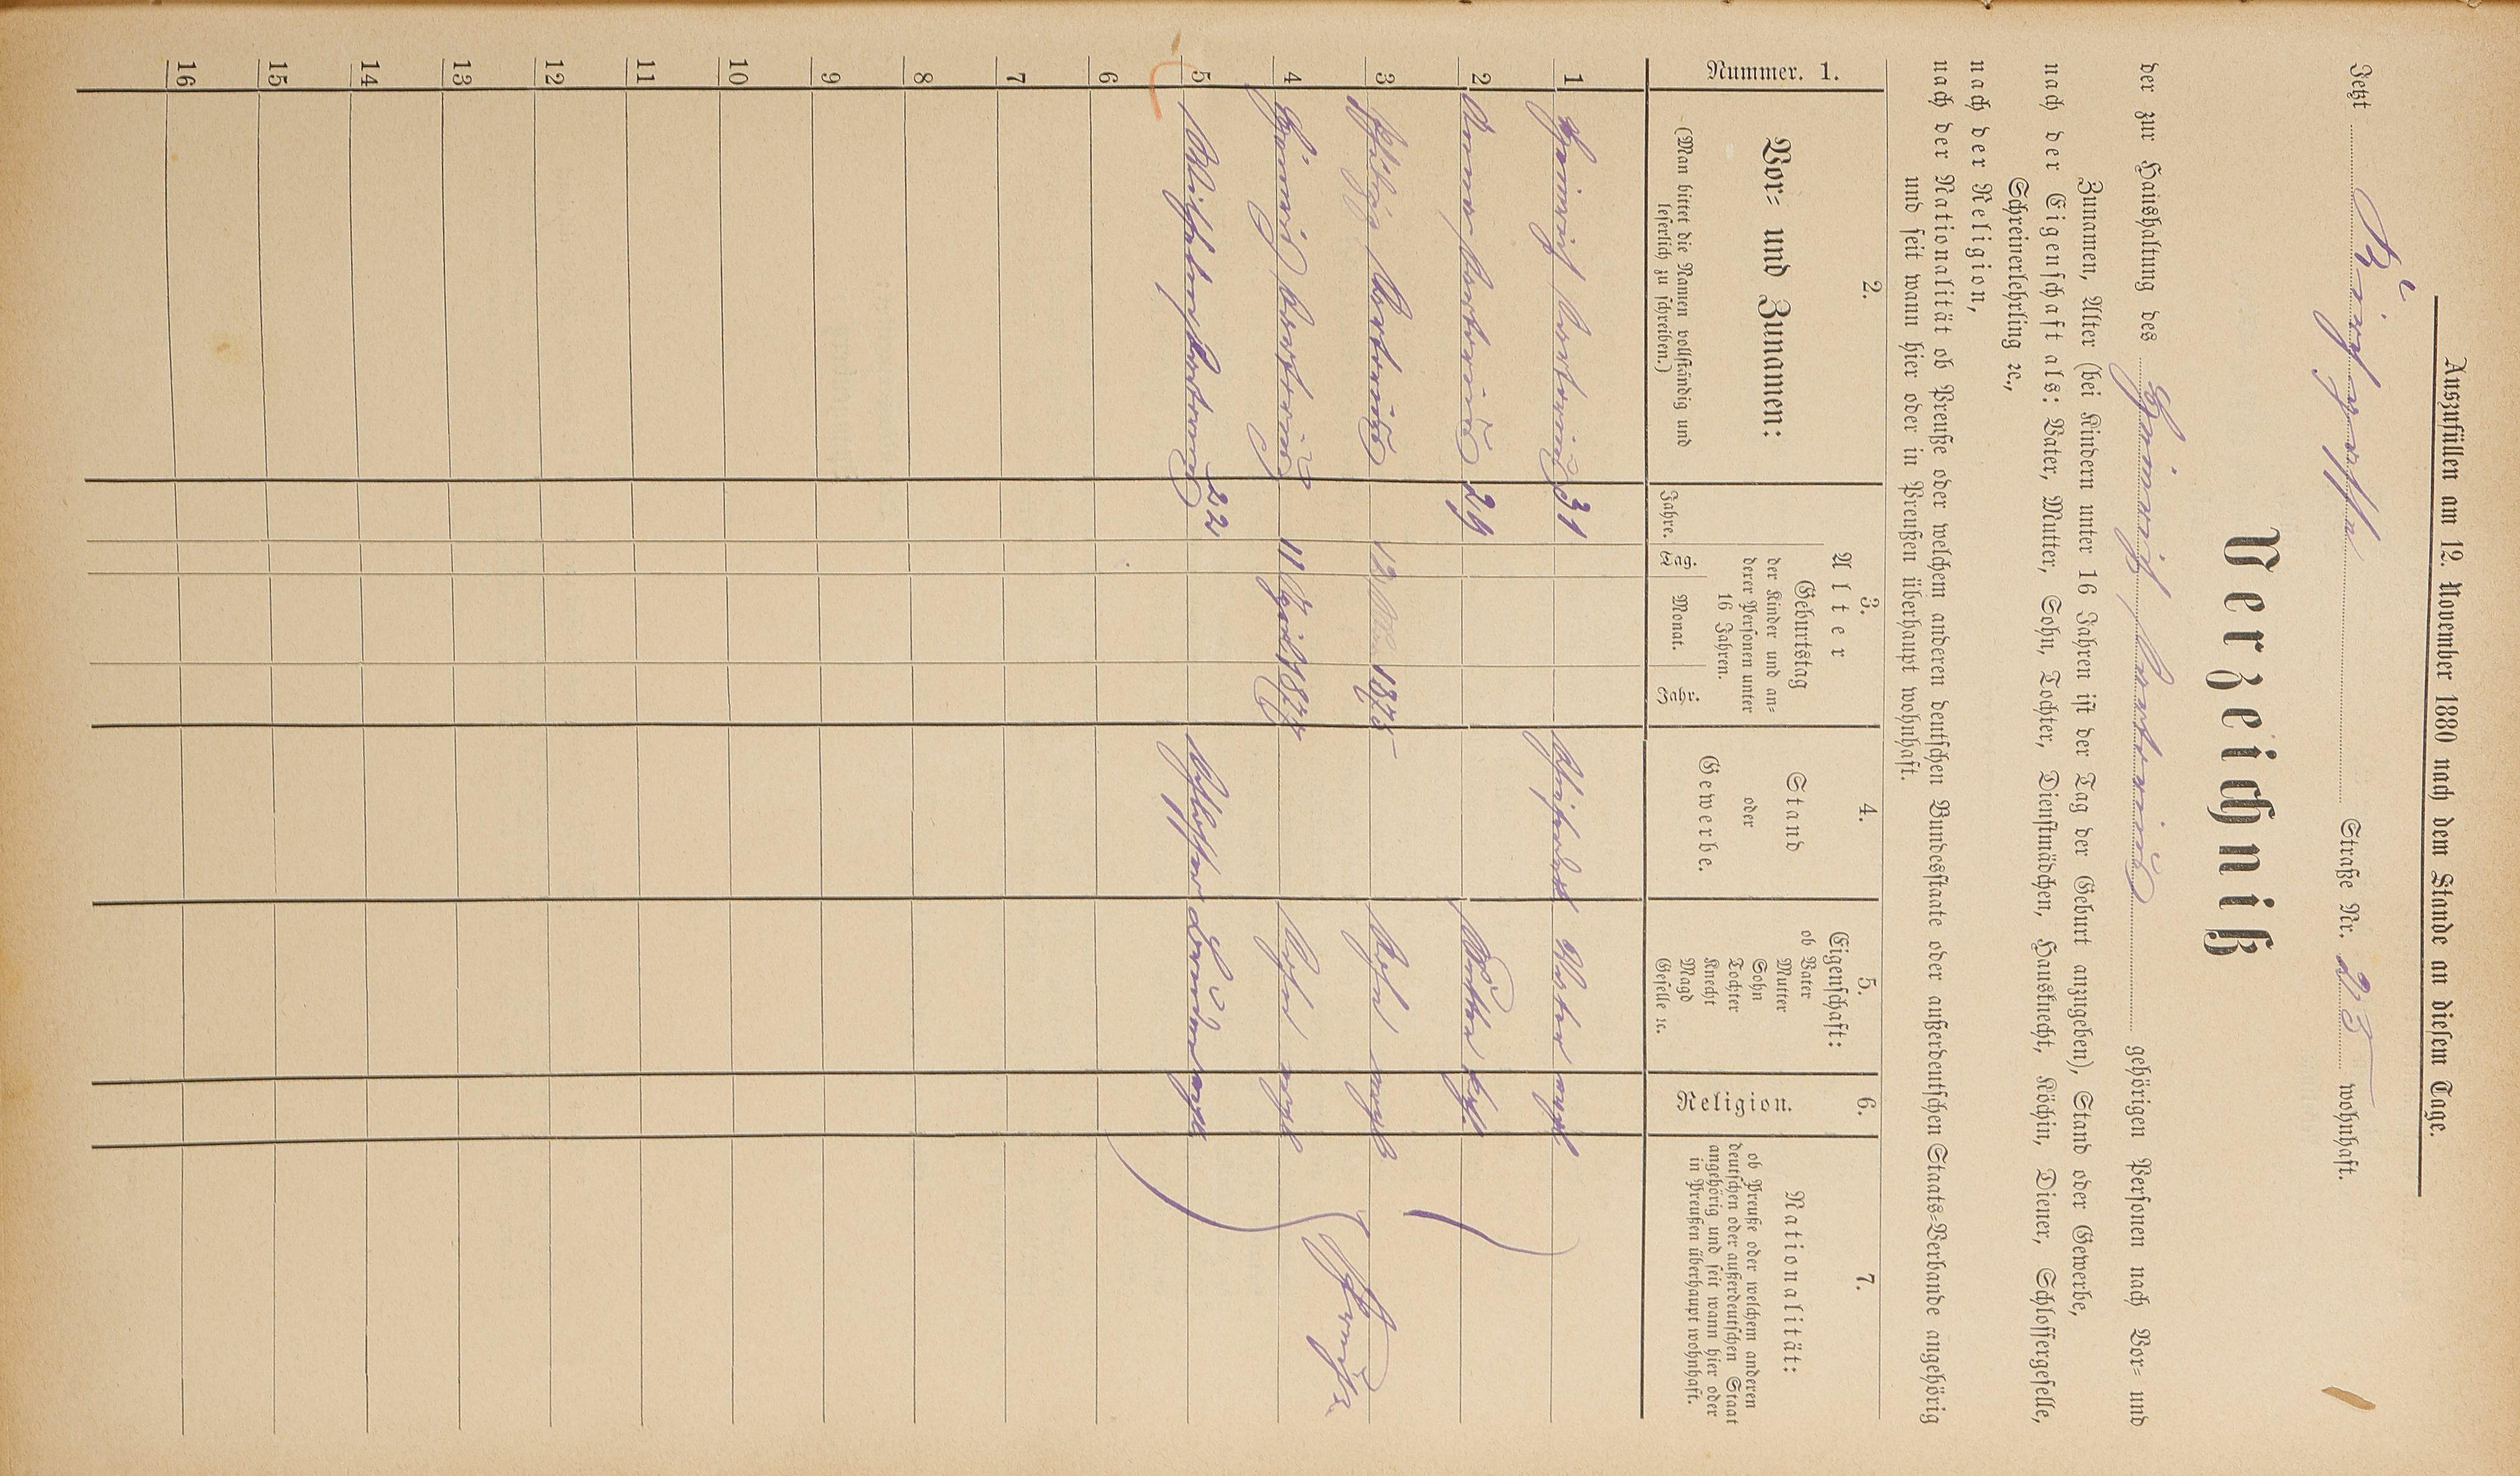 Auszufüllen am 12. November 1880 nach dem Stande an diesem Tage.
Jetzt Kirchgasse Straße Nr. 23 wohnhaft.
Verzeichniß
der zur Haushaltung des Heinrich gehörigen Personen nach Vor- und
Zunamen, Alter (bei Kindern unter 16 Jahren ist der Tag der Geburt anzugeben), Stand oder Gewerbe,
nach der Eigenschaft als: Vater, Mutter, Sohn, Tochter, Dienstmädchen, Hausknecht, Köchin, Diener, Schlossergeselle,
Schreinerlehrling ꝛc.,
nach der Religion,
nach der Nationalität ob Preuße oder welchem anderen deutschen Bundesstaate oder außerdeutschen Staats-Verbande angehörig
und seit wann hier oder in Preußen überhaupt wohnhaft.
Nummer. 1.
2.
Vor- und Zunamen:
(Man bittet die Namen vollständig und
leserlich zu schreiben.)
3.
Alter
Jahre.
Geburtstag
der Kinder und an-
derer Personen unter
16 Jahren.
Tag. Monat. Jahr.
4.
Stand
oder
Gewerbe.
5.
Eigenschaft:
ob Vater
Mutter
Sohn
Tochter
Knecht
Magd
Geselle ꝛc.
6.
Religion.
7.
Nationalität:
ob Preuße oder welchem anderen
deutschen oder außerdeutschen Staat
angehörig und seit wann hier oder
in Preußen überhaupt wohnhaft.
1 Heinrich 31 Vater evgl.
2 Anna 29 Mutter
3 12 1875 Sohn evgl
4 Heinrich 11 April 1877 Sohn evgl
5 Wilhelm 22 Schlosser Bruder evgl
Preuße
6
7
8
9
10
11
12
13
14
15
16